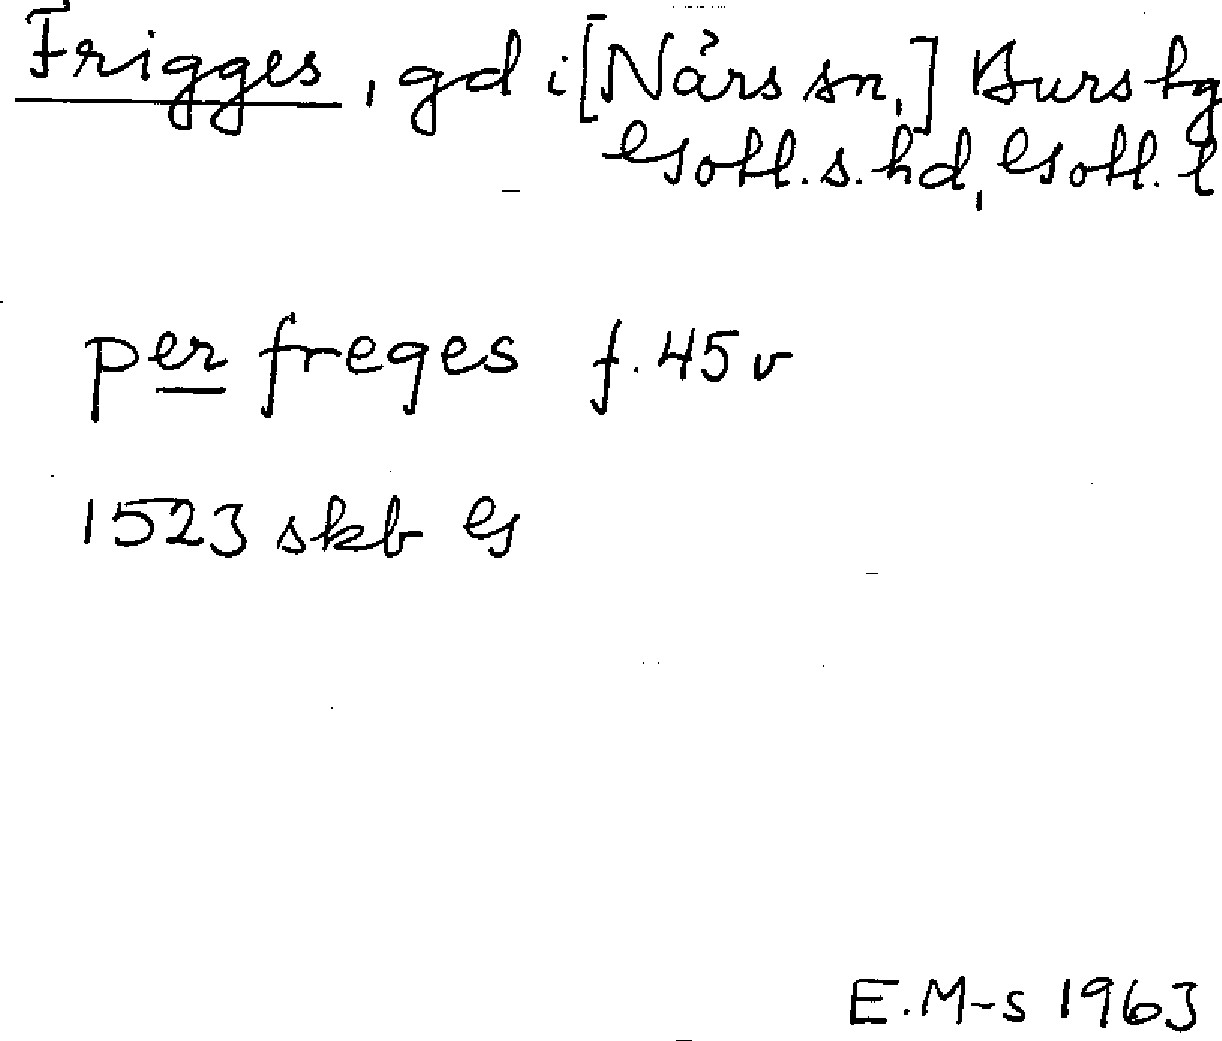 Frigges, gd i [Närs sn,] Burs tg
Gotl. s. hd, Gotl. l
per freges f. 45 v
1523 skb G
E. M-s 1963